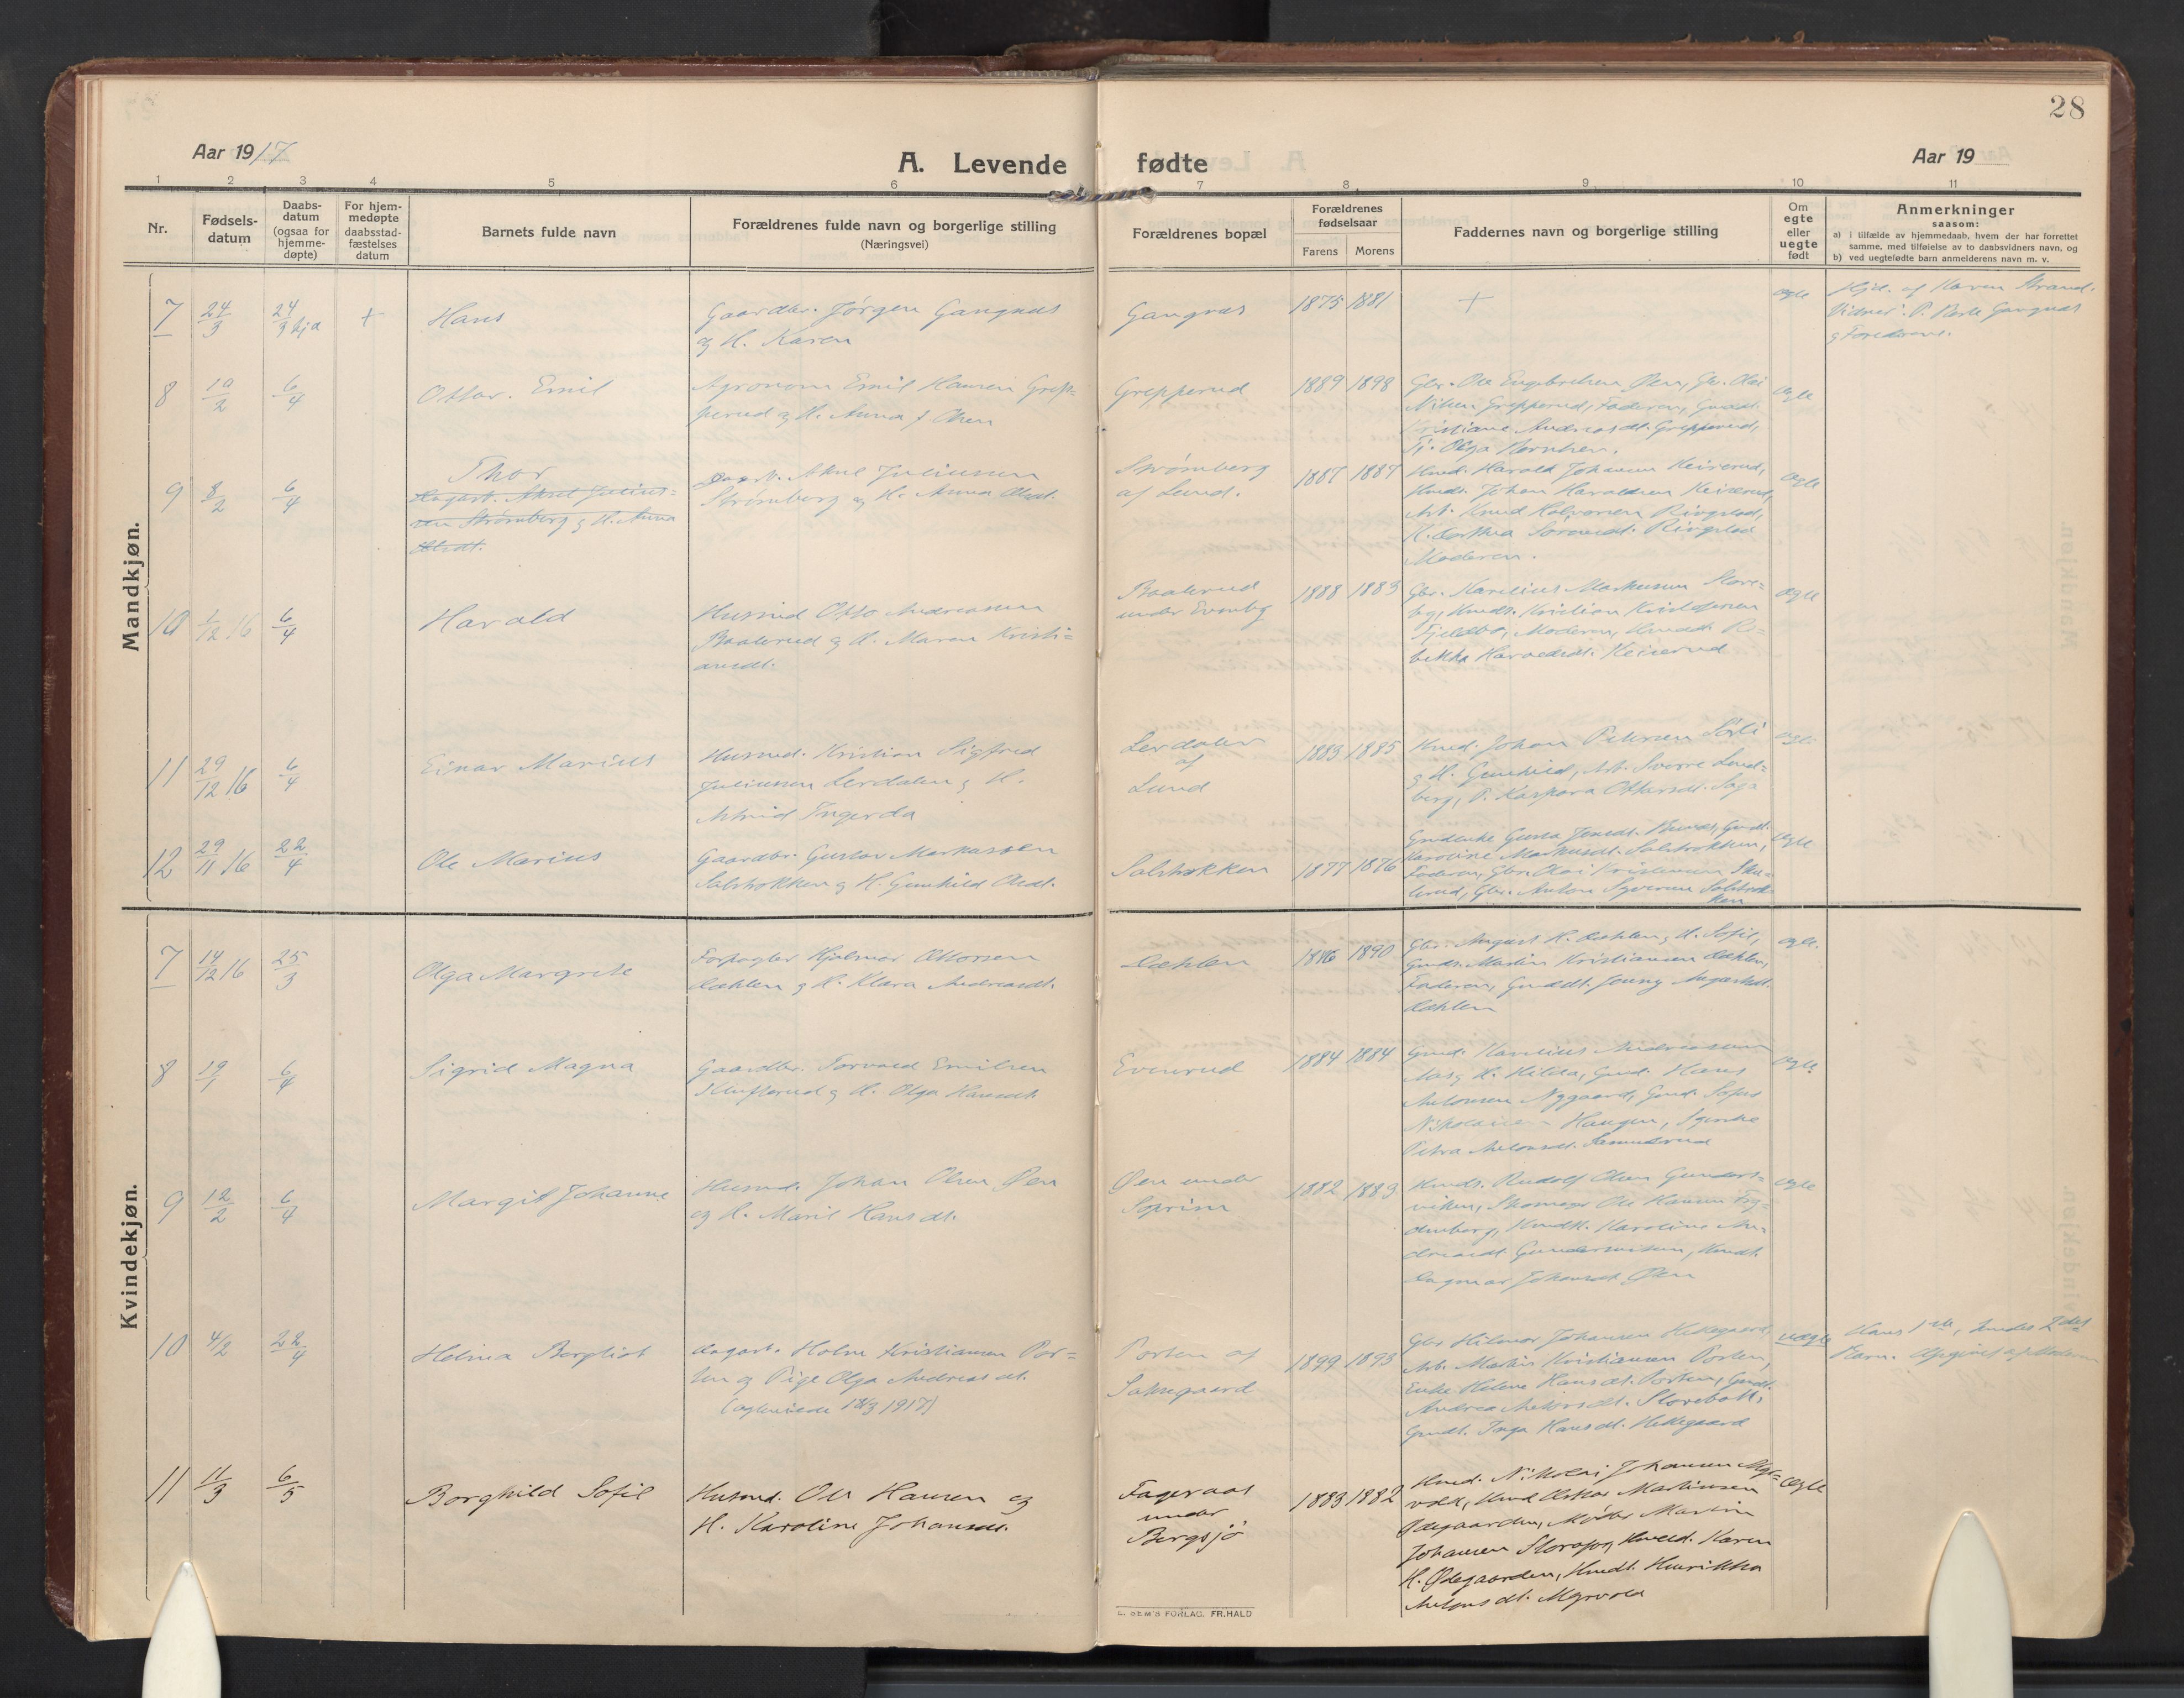 28
Aar 1917
A. Levende fødte
Aar 19
1 2 3 4 5 6 7 8 9 10 11
Nr.
Fødsels-
datum
Daabs-
datum
(ogsaa for
hjemme-
døpte)
For hjem-
medøpte
daabsstad-
fæstelses
datum
Barnets fulde navn
Forældrenes fulde navn og borgerlige stilling
(Næringsvei)
Forældrenes bopæl
Forældrenes
fødselsaar
Farens Morens
Faddernes navn og borgerlige stilling
Om
egte
eller
uegte
født
Anmerkninger
saasom:
a) i tilfælde av hjemmedaab, hvem der har forrettet
samme, med tilføielse av to daabsvidners navn, og
b) ved uegtefødte barn anmelderens navn m. v.
Mandkjøn.
7 24/3 24/3 hjd + Hans
Gaardbr. Jørgen Gangnæs
og H. Karen
Gangnæs 1875 1881 + egte
Hjd. af Karen Strand.
Vidner: P. Gangnæs
8 19/2 6/4 Ottar. Emil
Agronom Emil Hansen Grep-
perud og H. Anna Olsen
Grepperud 1889 1898
Gbr. Ole Engebretsen Øen, Gbr. Olai
Nilsen Grepperud, Faderen,
Kristiane Andreasdt. Grepperud,
Pi. Olga
egte
9 8/2 6/4 Thor
Dagarb. Aksel Julius-
sen Strømberg og H. Anna
Olsdt.
Dagarb. Aksel Juliussen
Strømberg og H. Anna Olsdt.
Strømberg
af Lund.
1887 1887
Hmd. Harald Johansen Keiserud,
Hmds. Johan Haraldsen Keiserud,
Arb. Knud Halvorsen Ringstad,
H. Dorthea Sørensdt. Ringstad
Moderen.
egte
10 /12 16 6/4 Harald
Husmd Otto Andreassen
Baalerud og H. Maren Kristi-
ansdt.
Baalerud
under Evenby
1888 1883
Gbr. Karelius Markussen Store-
by, Hmds. Kristian Kristoffersen
Fjeldbo, Moderen, Hmdt. Re-
bekka Haraldsdt. Keiserud
egte
11 29/12 16 6/4 Einar Marius
Husmd. Kristian Sigfred
Juliussen Lerdalen og H.
Astrid Ingerda
Lerdalen
af
Lund
1883 1885
Hmd. Johan Petersen Sørli
og H. Gunhild, Arb. Sverre Lund-
berg, P. Kaspara Ottarsdt. Saga
egte
12 29/11 16 22/4 Ole Marius
Gaardbr. Gustav Markussen
Salstokken og H. Gunhild Olsdt.
Salstokken 1877 1876
Gmdenke Gusta Jensdt.
Karoline Markusdt. Salstokken,
Faderen, Gbr. Olai Kristiansen
Gbr. Anton Syversen Salstok-
ken
egte
Kvindekjøn.
7 14/12 16 25/3 Olga Margrete
Forpagter Hjalmar Ottersen
Dæhlen og H. Klara Andreasdt.
Dæhlen 1886 1890
Gbr. August H. Dæhlen og H. Sofie,
Gmds. Martin Kristiansen Dæhlen,
Faderen, Gmddt. Jenny Augustsdt.
Dæhlen
egte.
8 19/1 6/4 Sigrid Magna
Gaardbr. Torvald Emilsen
Klufterud og H. Olga Hansdt.
Evenrud 1884 1884
Gmd. Karelius Andreassen
Aas og H. Hilda, Gmd. Hans
Antonsen Nygaard, Gmd. Sofus
Nikolaisen Haugen,
Petra Antonsdt.
egte
9 12/2 6/4 Margit Johanne
Husmd. Johan Olsen Øen
og H. Marie Hansdt.
Øen under
Soprim
1882 1883
Hmds. Rudolf Olsen Gunders-
viken, Skomager Ole Hansen Fry-
denberg, Hmdk. Karoline An-
dreasdt. Gundersviken, Hmdt.
Dagmar Johansdt. Øen
egte
10 4/2 22/4 Helma Bergliot
Dagarb. Holm Kristiansen Por-
ten og Pige Olga Andreasdt.
(egteviede 18/3 1917)
Porten af
Saksegaard
1899 1893
Gbr Hilmar Johansen Heksgaard,
Arb. Mathis Kristiansen Porten,
Enke Helene Hansdt. Porten, Gmdt.
Andrea Antonsdt.
Gmdt. Inga Hansdt. Heksgaard
uægte
Hans 1ste, hendes 2det
Barn. Opgivet af Moderen
11 11/3 6/5 Borghild Sofie
Husmd. Ole Hansen og
H. Karoline Johansdt.
Fageraas
under
Bergsjø
1883 1882
Hmd. Nikolai Johansen Myr-
vold, Hmd Oskar Martinsen
Ødegaarden, Møller Martin
Johansen Hmdd. Karen
H. Ødegaarden, Hmdt. Henrikka
Antonsdt. Myrvold
egte
E. SEM'S FORLAG. FR. HALD